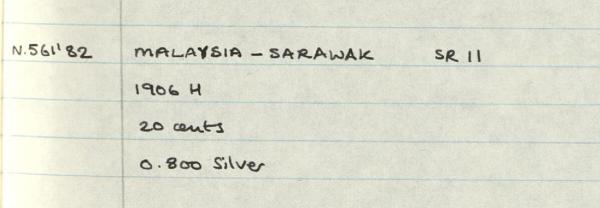 N.561'82 MALAYSIA - SARAWAK SR 11
1906 H
20 cents
0.800 Silver